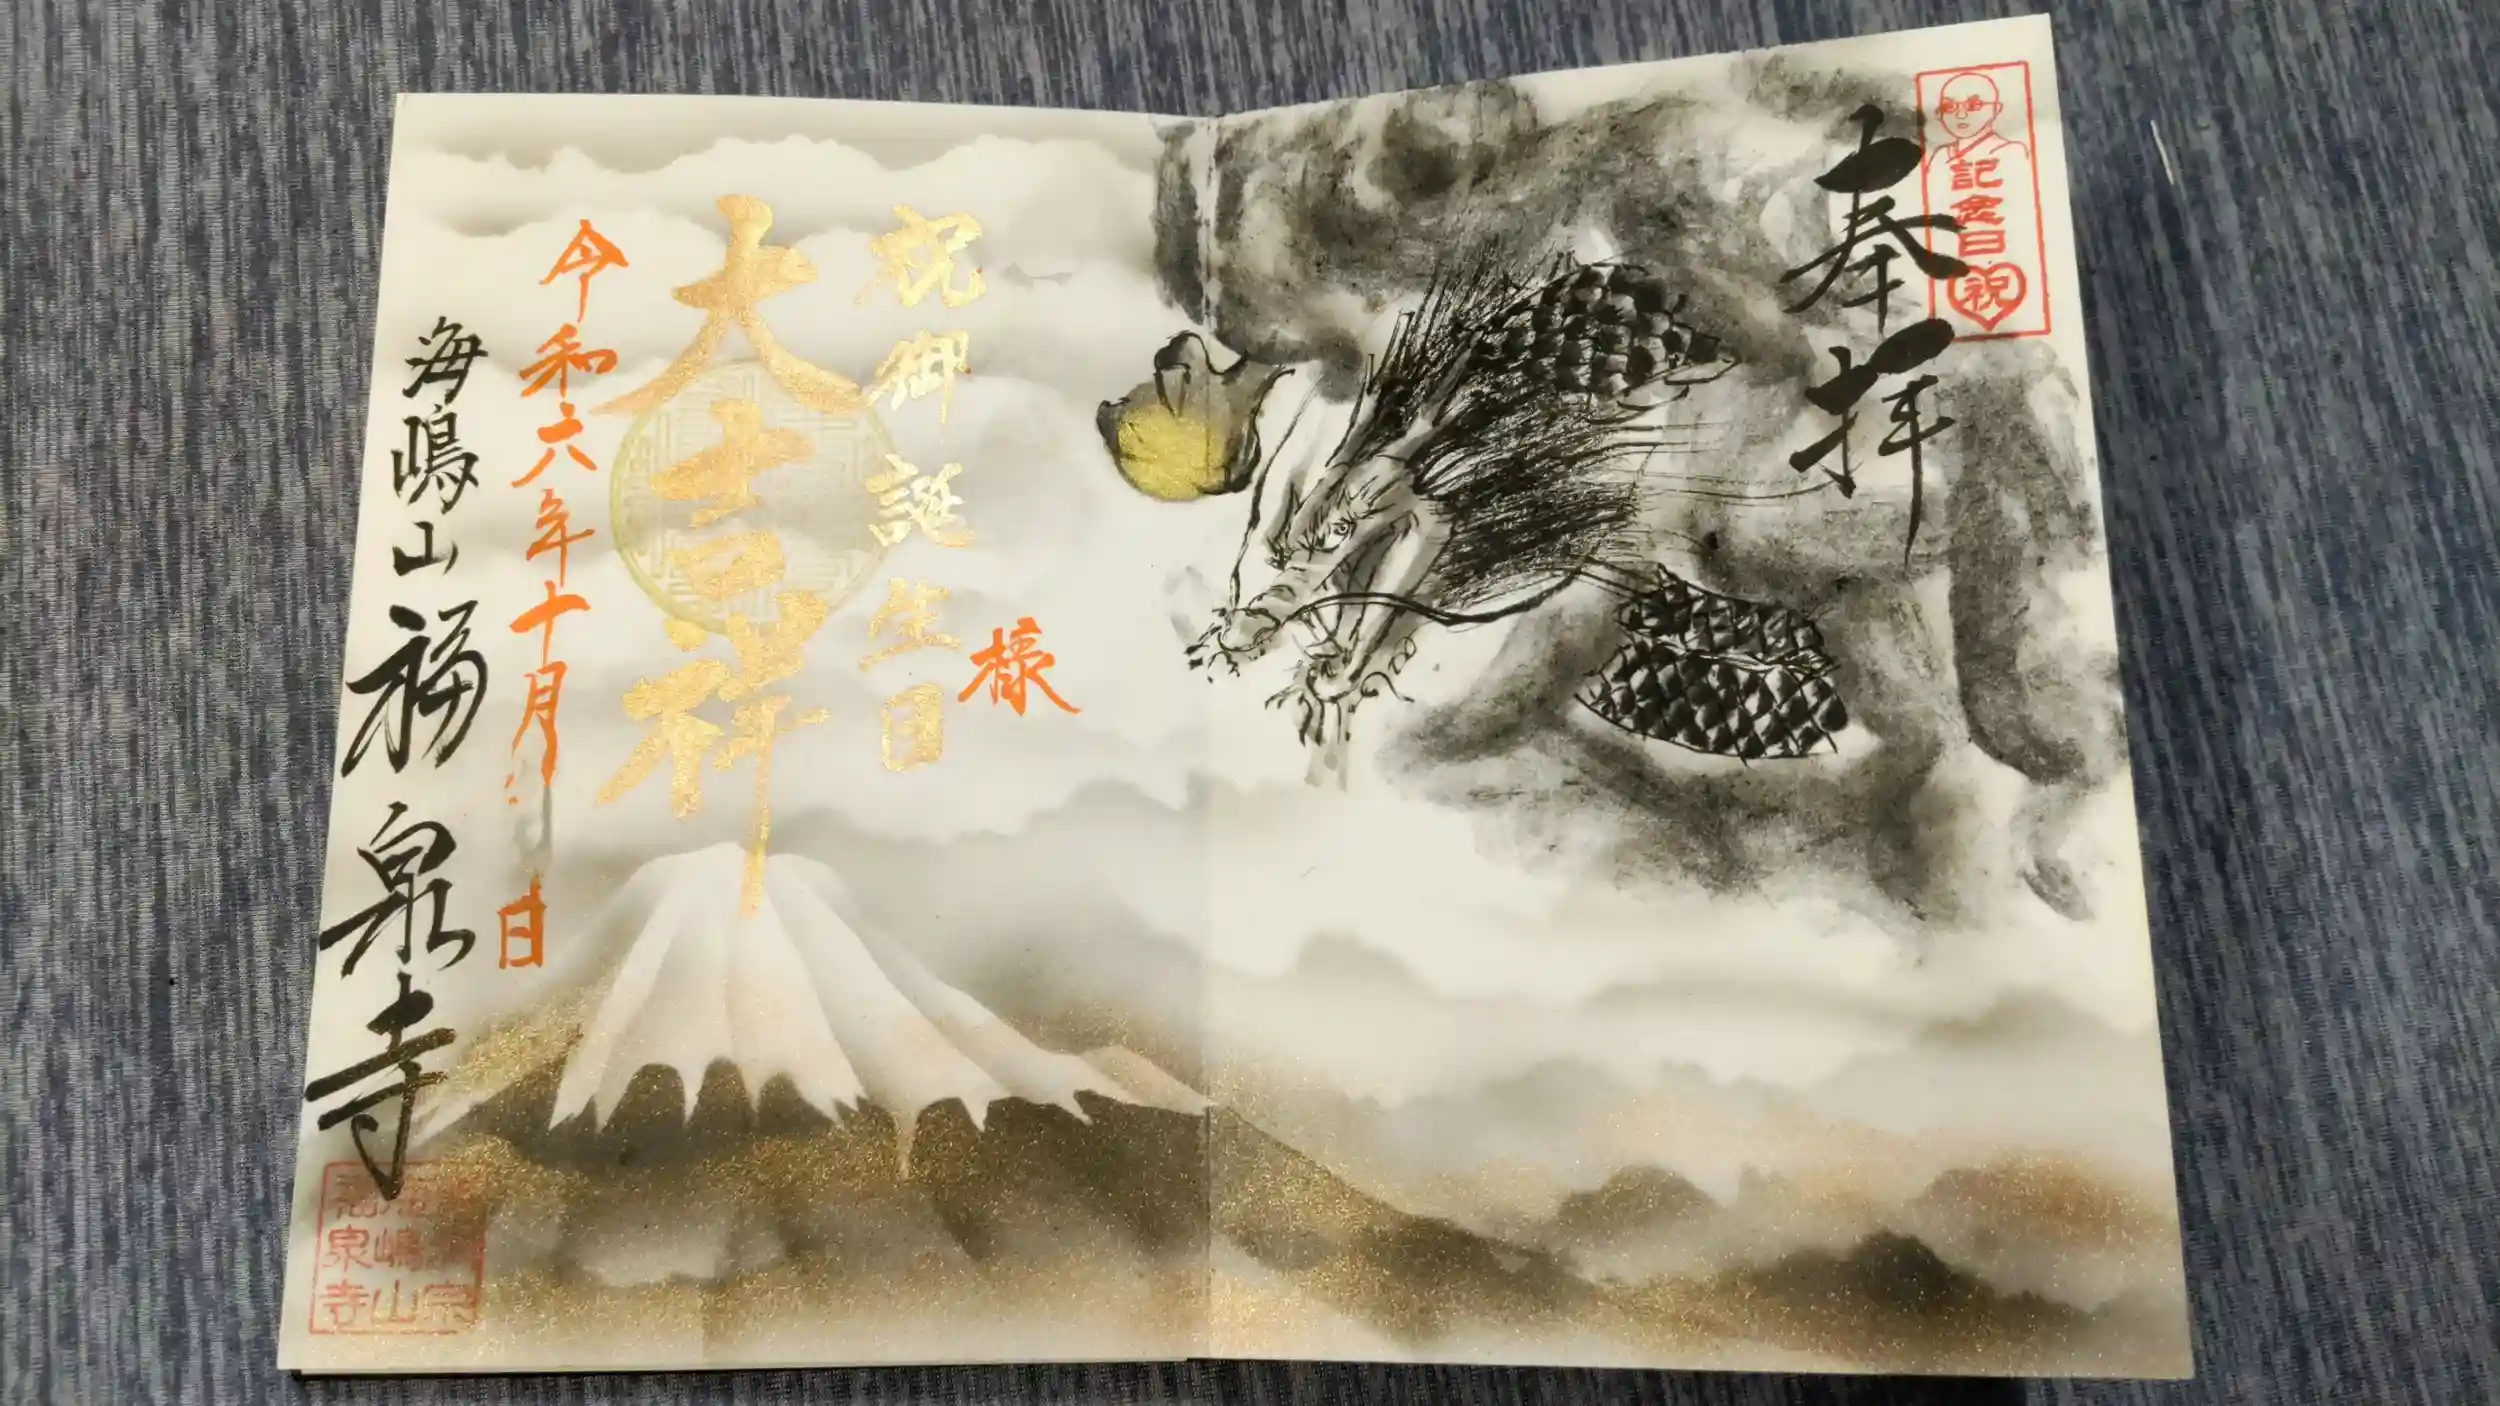 記念日
祝
奉拝
様
祝御誕生日
大吉祥
令和六年十月 日
海嶋山 福泉寺
宗
海嶋山
福泉寺